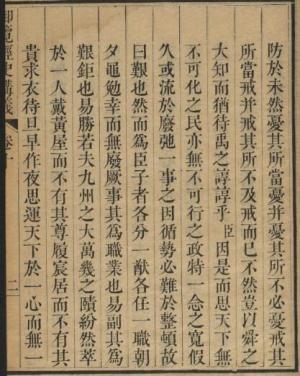 防於未然憂其所當憂并憂其所不必憂戒其
所當戒并戒其所不及戒而已不然豈以舜之
大知而猶待禹之諄諄乎臣因是而思天下無
不可化之民亦無不可行之政特一念之寬假
久或流於廢弛一事之因循勢必難於整頓故
曰艱也然而為臣子者各分一猷各任一職朝
夕黽勉幸而無廢厥事其為職業也易副其為
艱鉅也易勝若夫九州之大萬幾之賾紛然萃
於一人戴黃屋而不有其尊履宸居而不有其
貴求衣待旦早作夜思運天下於一心而無一
御覽經史講義
卷一
二